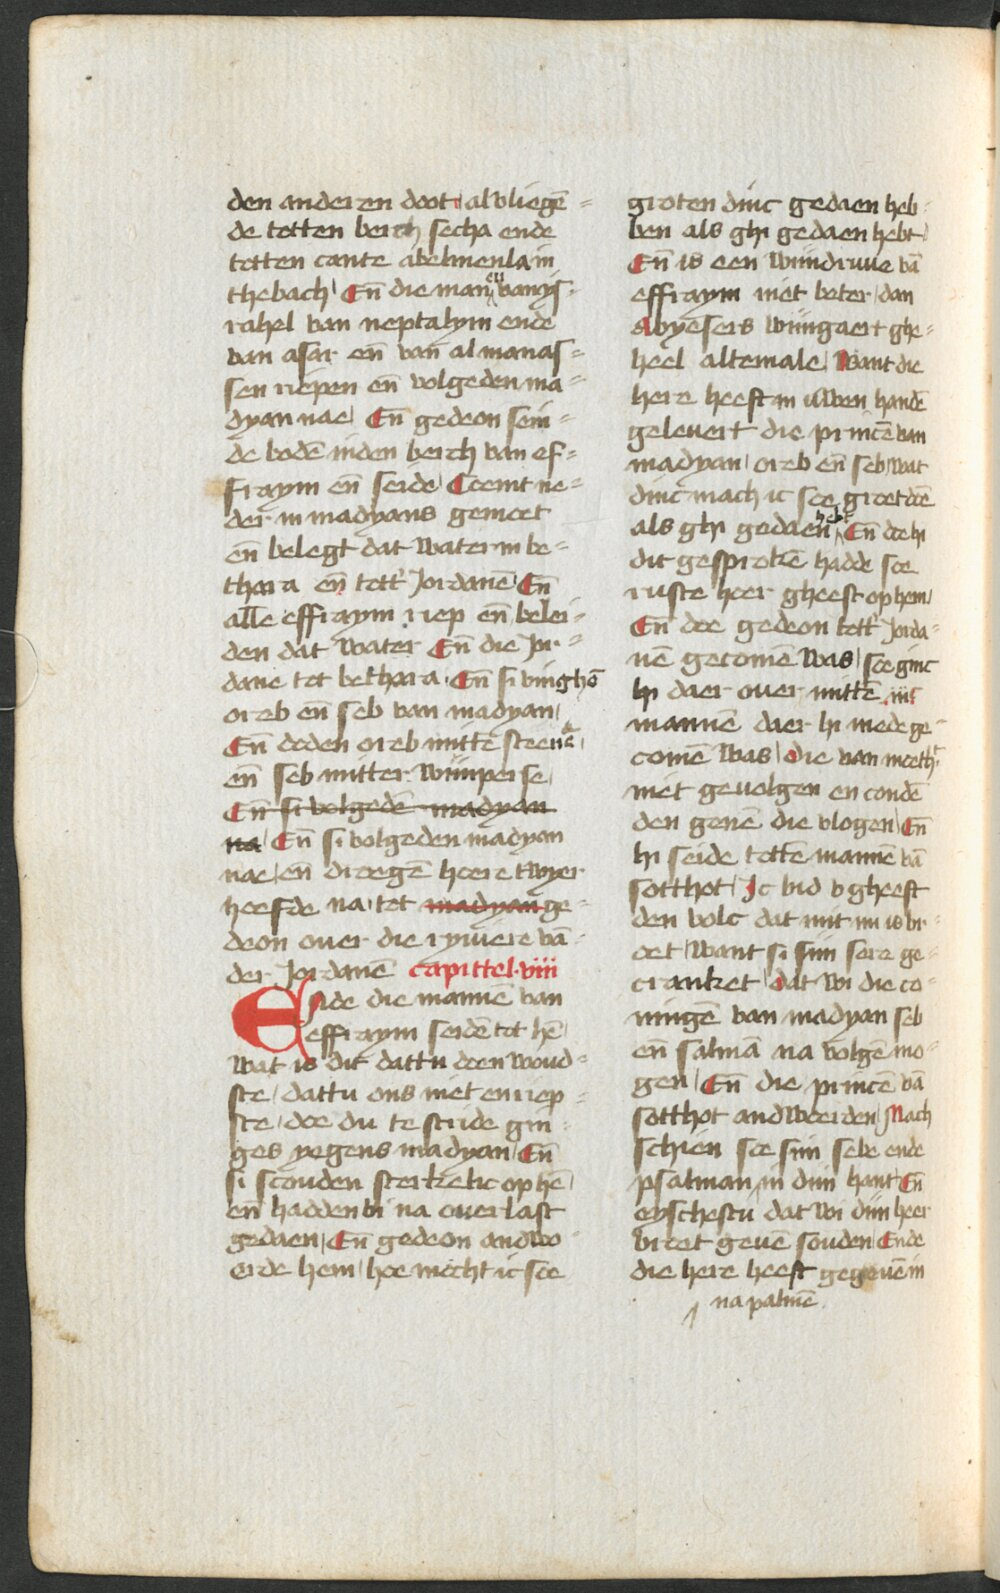 den anderen doot al vliegē =
de totten berch secha ende
totten cante abelmenla in
thebach En̄ die man en van ys-
rahel van neptalym ende
van asar en̄ van al manas=
sen riepen en̄ volgeden ma=
dyan nae En̄ gedeon sein=
de bodē in den berch van ef=
fraym en̄ seide Coemt ne=
der in madyans gemoet
en̄ belegt dat water in be=
thara en̄ tott' Jordanē En̄
alle effraym riep en̄ belei=
den dat water En̄ die Jor=
dane tot bethara En̄ si vinghē
oreb en̄ seb van madyan
En̄ doden oreb mittē steene
en̄ seb mitter wijnperse
En̄ si volgedē madyan
na En̄ si volgeden madyan
nae en̄ droegē hoere twyer
hoefde na tot madyan ge=
deon over die ryviere vā=
der Jordanē capittel viii
Eside die mannē van
effraym seidē tot hē
wat is dit dattu doen woud=
ste dattu ons niet en riep=
ste doe du te stride gin=
ges yegens madyan En̄
si scouden sterkelic op hē
en̄ hadden bi na overlast
gedaen En̄ gedeon andwo=
erde hem hoe mocht ic soe
groten dinc gedaen heb=
ben als ghi gedaen hebt
En̄ is een wijndruve vā
effraym niet beter dan
abyesers wijngaert ghe=
heel altemale Want die
here heeft in uwen handē
gelevert die princē van
madyan oreb en̄ seb wat
dinc mach ic soe groet doē
als ghi gedaen heb= En̄ doe hi
dit gesprokē hadde soe
ruste hoer gheest op hem
En̄ doe gedeon tott' Jorda=
nē gecomē was soe ginc
hi daer over mittē iiic
mannē daer hi mede ge=
comē was die van moeth'
niet gevolgen en condē
den genē die vlogen En̄
hi seide totte mannē vā
sotthot Ic bid v gheeft
den volc dat mit mi is br=
oet want si sijn sere ge=
cranket dat wi die co=
ningē van madyan seb
en̄ salmā na volgē mo=
gen En̄ die princē vā
sotthot andwoerden Mach
schien soe sijn sebe ende
psalman in dijn hant En̄
eyschestu dat wi dijn heer
broet gevē souden Ende
die here heeft gegevē in
na palmē